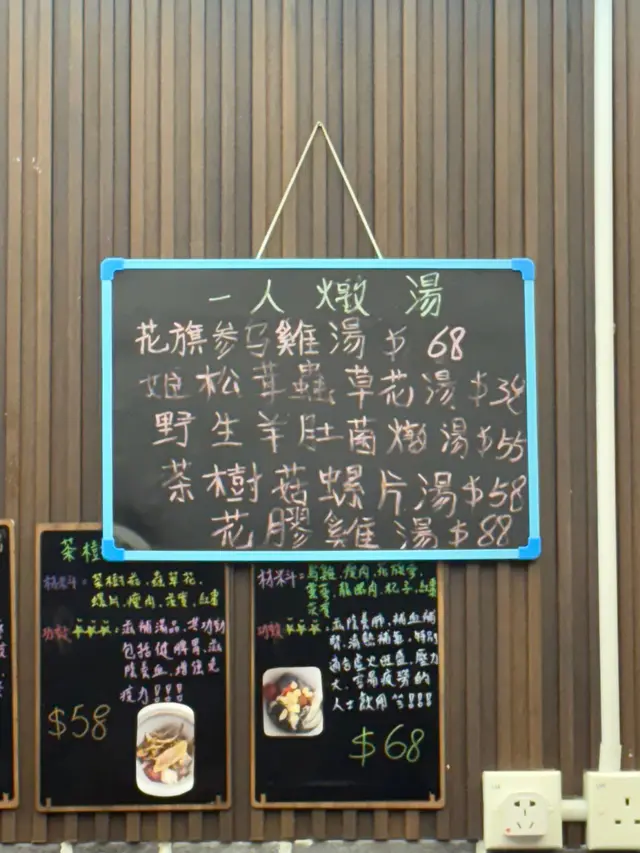 一人燉湯
花旗参乌雞湯 $ 68
姬松茸蟲草花湯 $38
野生羊肚菌燉湯 $55
茶樹菇螺片湯 $58
花膠雞湯 $88
茶樹
材料：茶樹菇，蟲草花，
螺片，瘦肉，淮常，紅棗
功效：滋補湯品，其功効
包括健脾胃、滋
陰養血、增強免
疫力！！！
$58
材料：烏雞，瘦肉，花旗參，
龍眼肉，杞子，紅棗
功效：滋陰養肺，補血補
腎、清熱補氣，特別
適合虛火旺盛，壓力
大、容易疲勞的
人士飲用！！！
$68